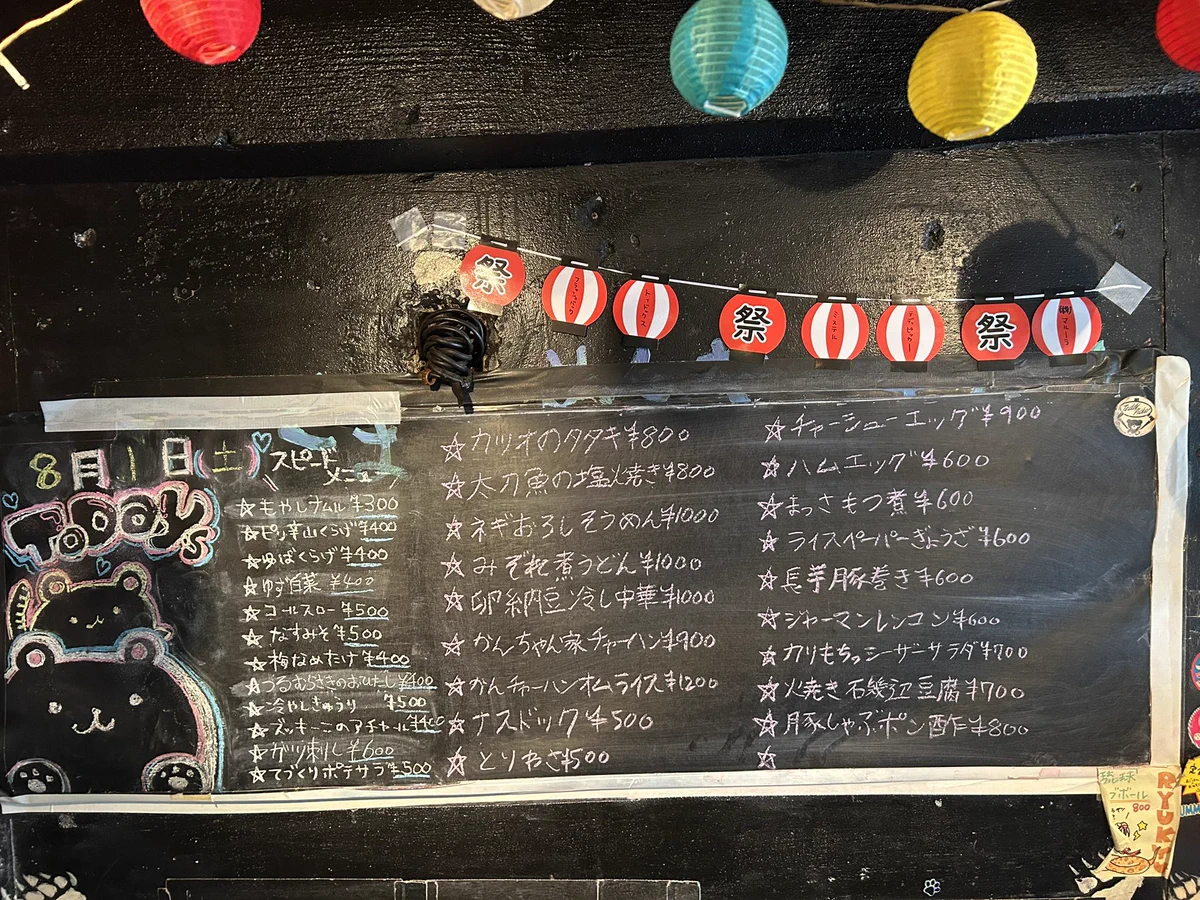 祭
祭
祭
8月1日(土)
TODAY's
スピード
メニュー
☆もやしナムル ¥300
☆ピリ辛山くらげ ¥400
☆ゆばくらげ ¥400
☆ゆず白菜 ¥400
☆コールスロー ¥500
☆なすみそ ¥500
☆梅なめたけ ¥400
☆つるむらさきのおひたし ¥400
☆冷やしきゅうり ¥500
☆ズッキーニのアチャール ¥400
☆ガツ刺し ¥600
☆てづくりポテサラ ¥500
☆カツオのタタキ ¥800
☆太刀魚の塩焼き ¥800
☆ネギおろしそうめん ¥1000
☆みぞれ煮うどん ¥1000
☆卵納豆冷し中華 ¥1000
☆かんちゃん家チャーハン ¥900
☆かんチャーハンオムライス ¥1200
☆ナスドック ¥500
☆とりわさ ¥500
☆チャーシューエッグ ¥900
☆ハムエッグ ¥600
☆まっさもつ煮 ¥600
☆ライスペーパーぎょうざ ¥600
☆長芋豚巻き ¥600
☆ジャーマンレンコン ¥600
☆カリもちっシーザーサラダ ¥700
☆焼き石幾辺豆腐 ¥700
☆豚しゃぶポン酢 ¥800
☆
琉球
ブボール
800